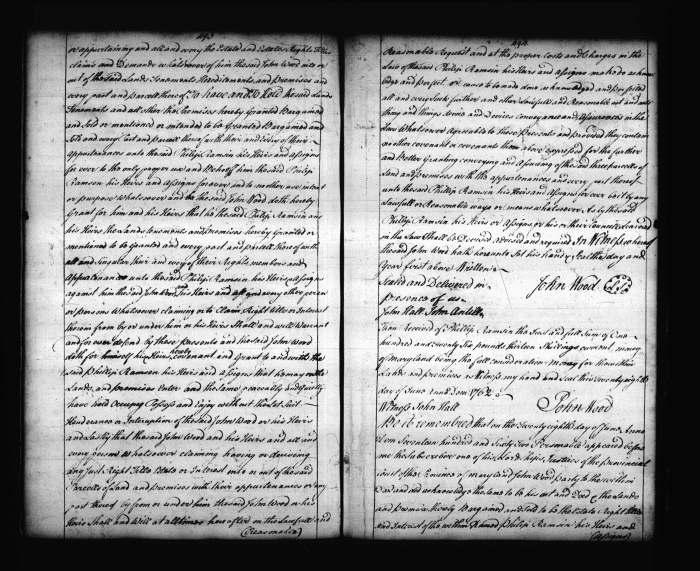 493
or appurtaining and all and every the Estate and Estates Rights Titles
claims and Demands whatsoever of him the said John Wood into or
out of the said Lands Tenements Hereditaments and premises and
every part and parcell thereof To have and To hold the said Lands
Tenements and all other the Premises hereby Granted Bargained
and Sold or mentioned or intended to be Granted Bargained and
Sold and every part and parcell thereof with their and every of their
appurtenances unto the said Phillip Ramsin his Heirs and assigns
for ever to the only proper use and Behoof him the said Philip
Ramson his Heirs and assigns for ever and to no other use intent
or purpose whatsoever and he the said John Wood doth hereby
Grant for him and his Heirs that he the said Philip Ramsin and
his Heirs the Lands Tenements and Premises hereby Granted or
mentioned to be Granted and every part and parcell thereof with
all and Singular their and every of their Rights members and
appurtenances unto the said Philip Ramsin his Heirs & assigns
against him the said John Wood and his Heirs and all and every other person
or persons whatsoever claiming or to Claim Right title or Interest
therein from by or under him or his Heirs Shall and will Warrant
and for ever defend by these presents and the said John Wood
doth for himself his Heirs hereby covenant and grant to and with the
said Phillip Ramson his Heirs and assigns that he may into the
Lands and premises enter and the same peaceably and Quietly
have hold Occupy Possess and Enjoy without the Let Suit
Hinderance or Interuption of the said John Wood or his Heirs
and Lastly that the said John Wood and his Heirs and all and
every person whatsoever claiming having or deriving
any Just Right Title Estate or Interest into or out of the said
Parcells of Land and premises with their appurtenances or any
part thereof by from or under him the said John Wood or his
Heirs Shall and Will at all times hereafter on the Lawfull and
(Reasonable)
494
Reasonable Request and at the proper Costs and Charges in the
Law of the said Philip Ramsin his Heirs and assigns make do acknow
ledge and perfect or cause to be made done acknowledged and perfected
all and every such further and other Lawfull and Reasonable act and acts
thing and things Devices and Devices conveyances and assurances in the
Law whatsoever agreeable to these presents and provided they contain
no other covenant or covenants than above expressed for the further
and Better Granting conveying and assuring of the said three parcells of
Land and premises with the appurtenances and every part thereof
unto the said Philip Ramsin his Heirs and assigns for ever but by any
Lawfull or Reasonable ways or means whatsoever as by the said
Phillip Ramsin his Heirs or assigns or his or their Council Learned
in the Law Shall be Devised advised and required In Witness whereof
the said John Wood hath hereunto Set his hand & Seal the day and
Year first above Written
Sealed and Delivered in
presence of us
John Wood
John Hall John Antill
then Received of Phillip Ramsin the Just and full Sum of One
hundred and twenty Six pounds thirteen Shillings current money
of Maryland being the full consideration money for the within
Lands and premises as Witness my hand and Seal this twenty eighth
day of June anno Dom 1762
Witness John Hall
John Wood
Be it remembred that on the Twenty eighth day of June anno
Dom Seventeen hundred and Sixty two Personable appeared before
me the Subscriber one of his Lordships Justices of the provincial
court of the Province of Maryland John Wood party to the within
Deed and did acknowledge the same to be his act and Deed & the Lands
and Premises thereby Bargained and Sold to be the Estate Right title
and Interest of the within Named Philip Ramsin his Heirs and
(assigns)